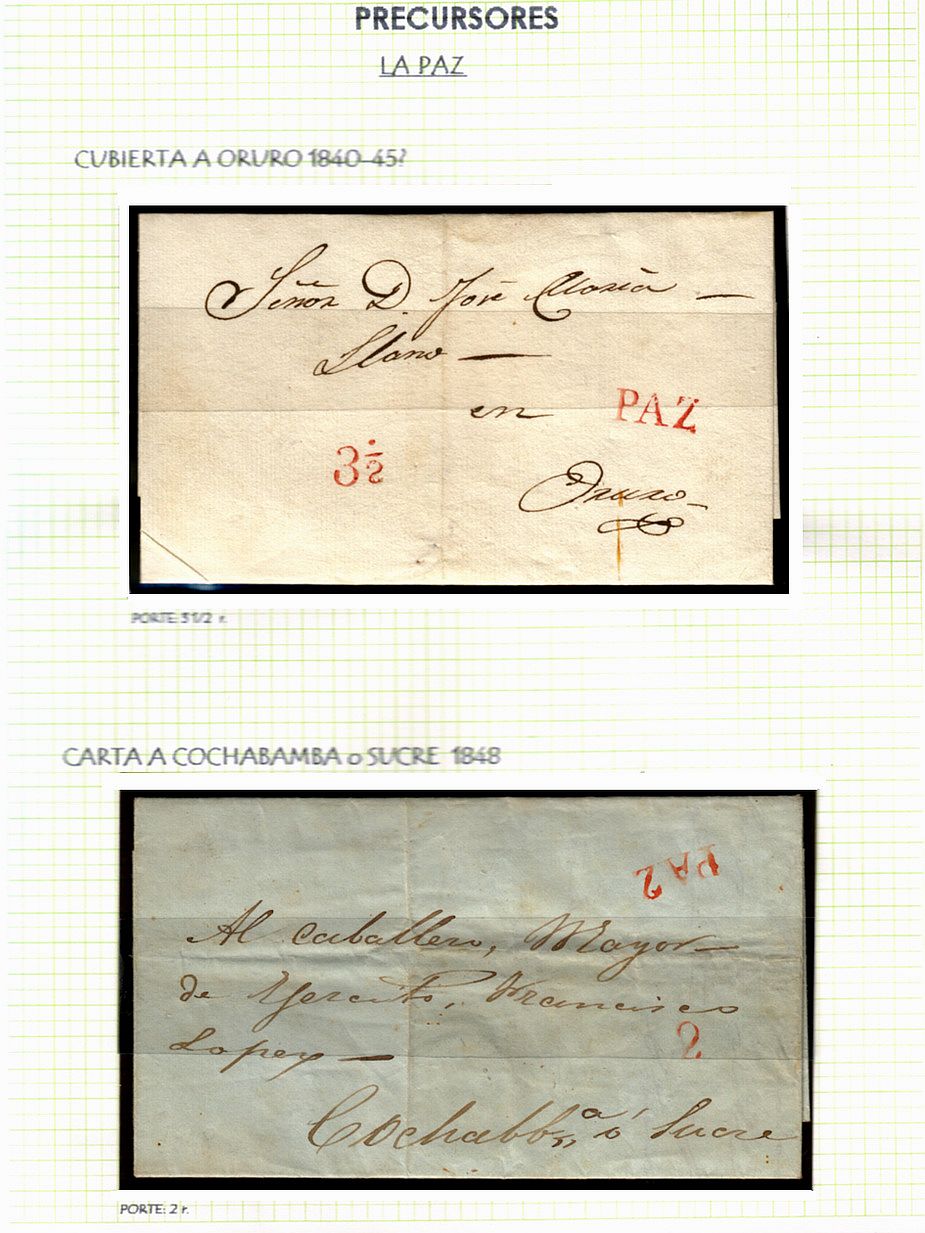 PRECURSORES
LA PAZ
CUBIERTA A ORURO 1840-45?
Señor D. José María
Llano
en PAZ
3 1/2
Oruro
PORTE: 3 1/2 r.
CARTA A COCHABAMBA o SUCRE 1848
PAZ
Al caballero, Mayor
de Ejercito, Francisco
2
Lopez
Cochabb.ª ó Sucre
PORTE: 2 r.